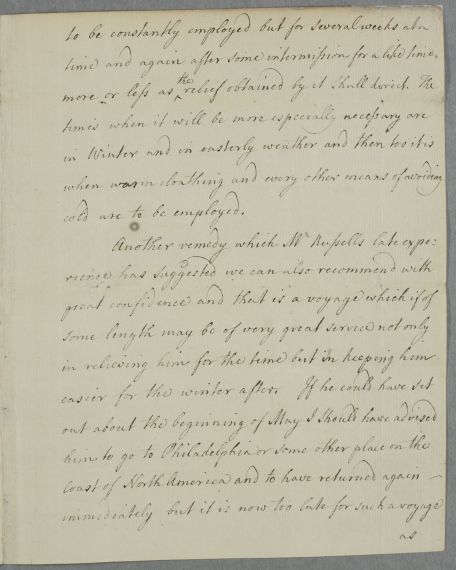 to be constantly employed but for several weeks at a
time and again after some intermission for a like time,
more or less as the relief obtained by it shall direct. The
times when it will be more especially necessary are
in Winter and in easterly weather and then too it is
when warm cloathing and every other means of avoiding
cold are to be employed.
Another remedy which Mr Russells late expe:
rience has suggested we can also recommend with
great confidence and that is a voyage which if of
some length may be of very great service not only
in relieving him for the time but in keeping him
easier for the winter after. If he could have set
out about the beginning of May I should have advised
him to go to Philadelphia or some other place on the
Coast of North America and to have returned again
immediately but it is now too late for such a voyage
as